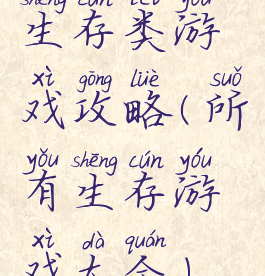 shēng cún lèi yóu
生存类游
xì gōng lüè suǒ
戏攻略(所
yǒu shēng cún yóu
有生存游
xì dà quán
戏大全)